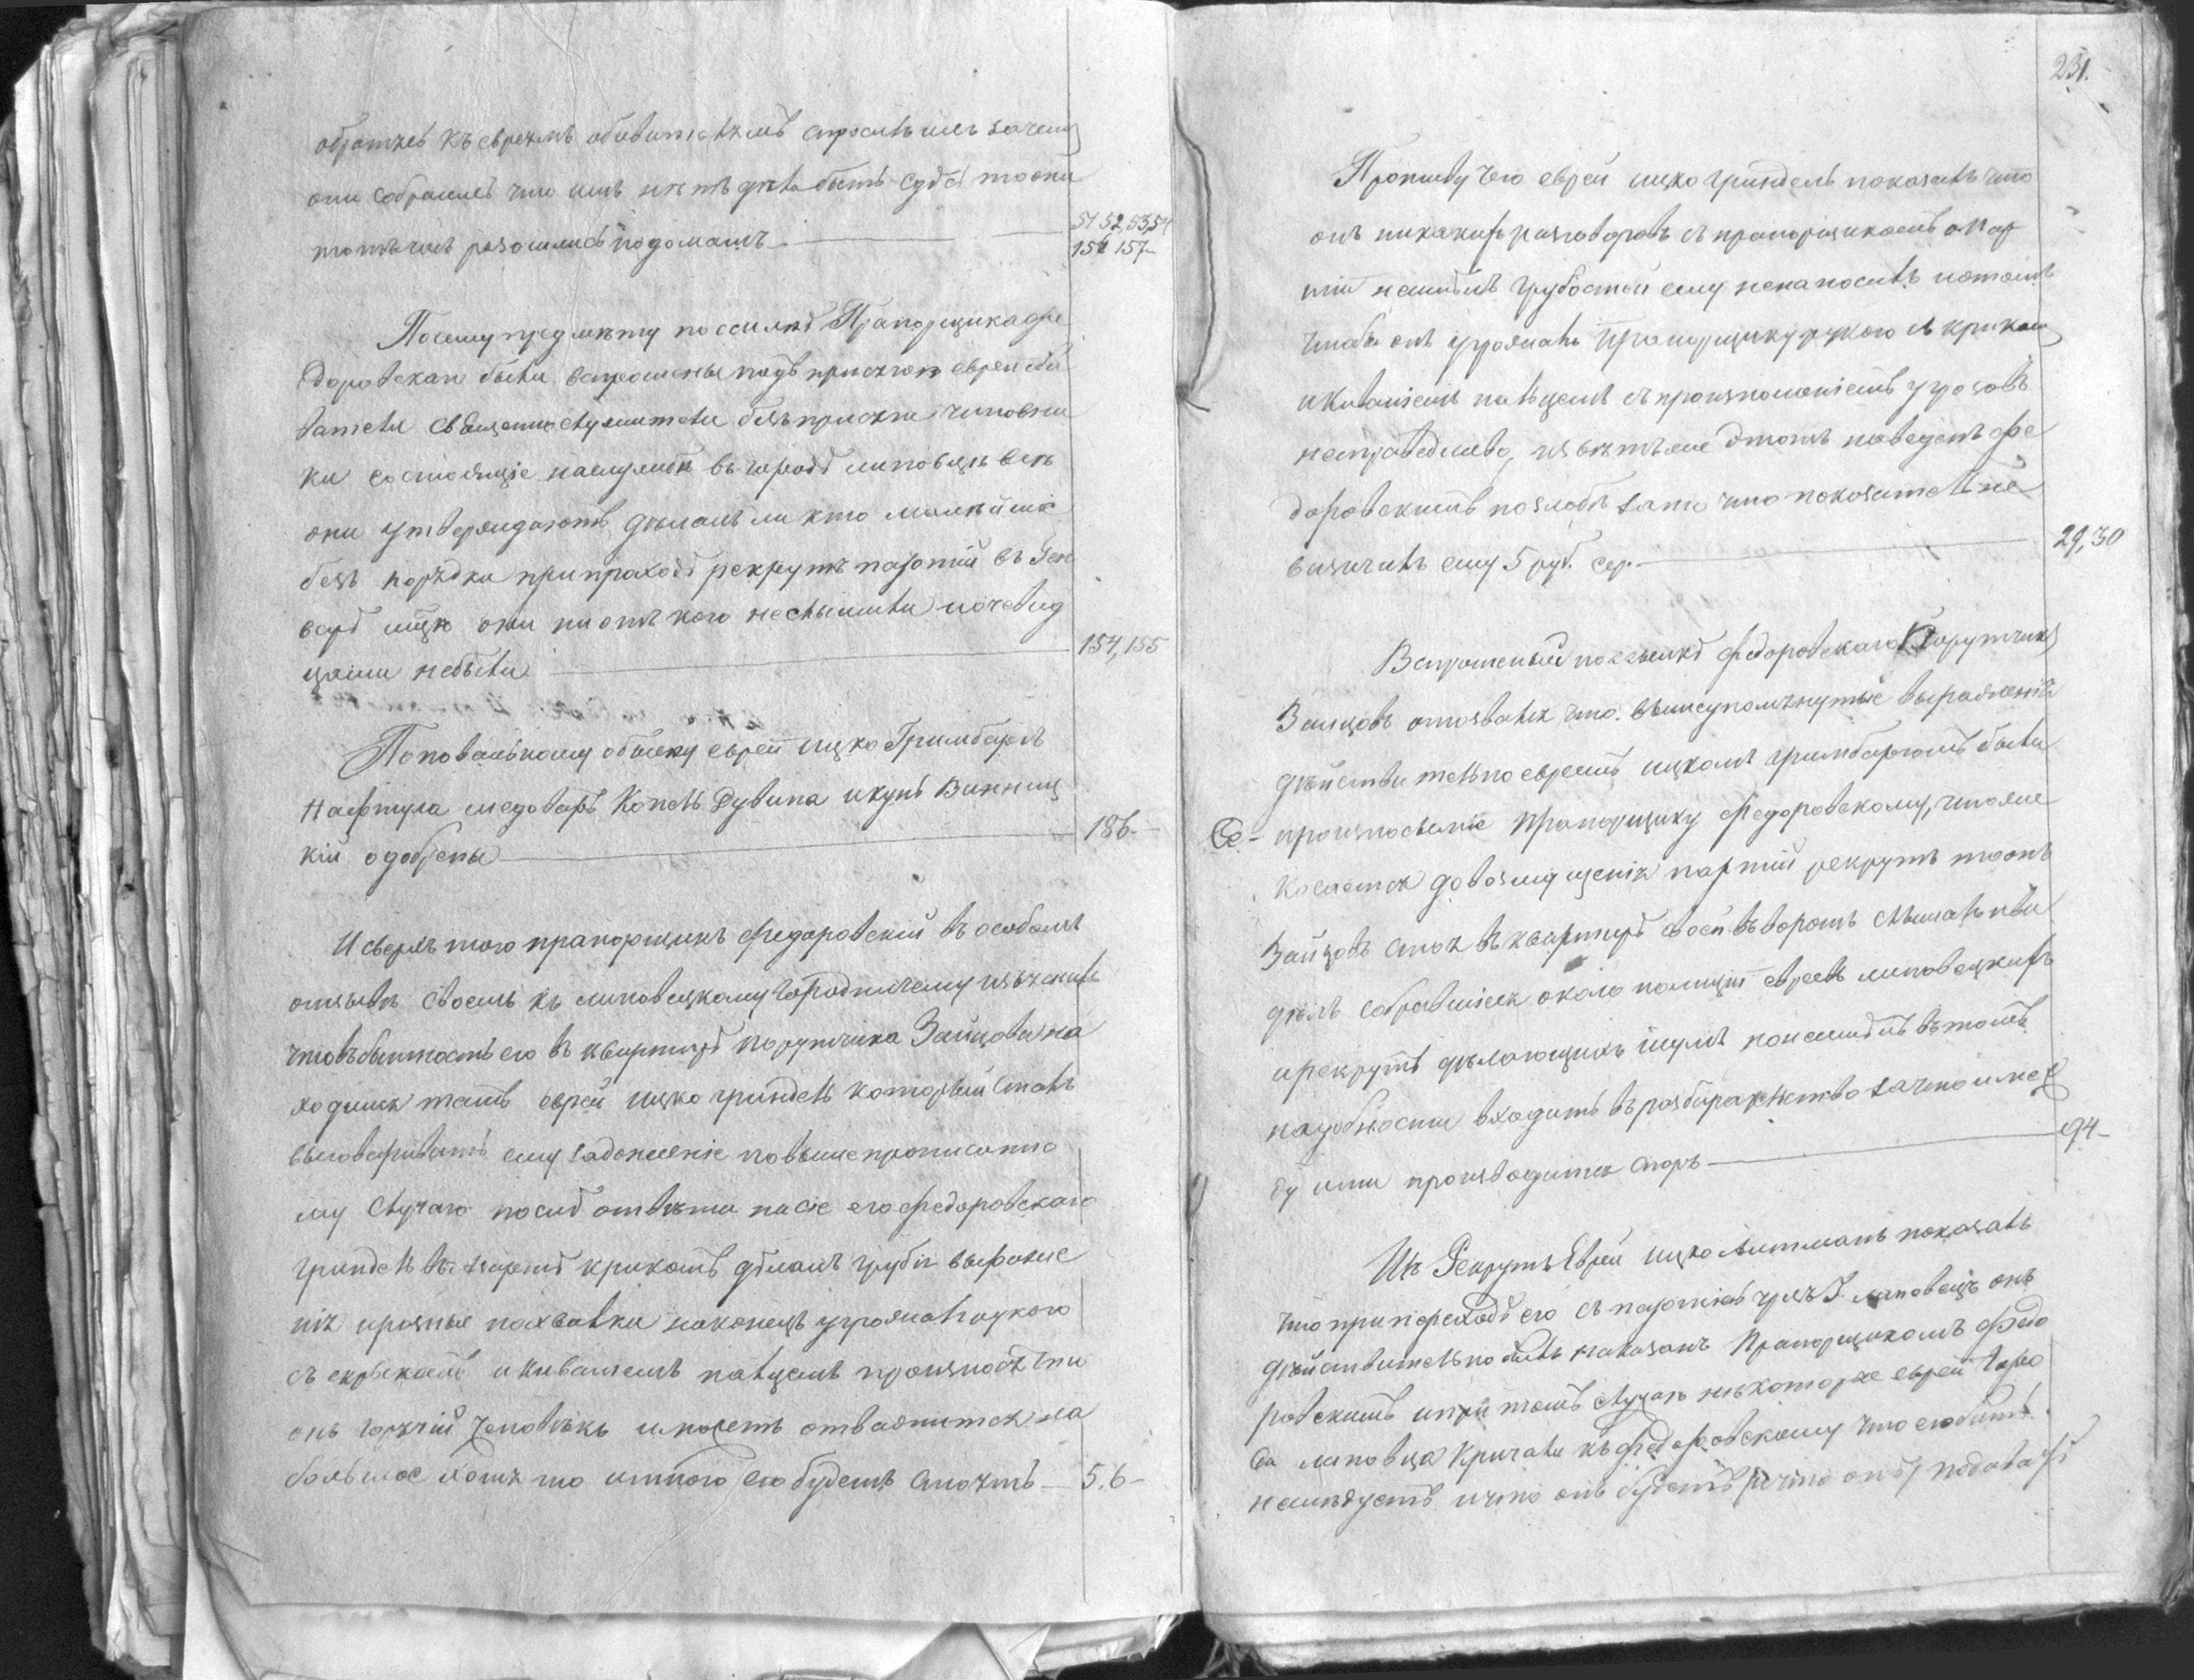 обратясь къ евреямъ обывателямъ спросилъ ихъ зачемъ
они собрались что имъ нѣтъ дѣла быть сдѣсь то они
тотъ часъ разошлись подомамъ
51 52, 53, 54
156 157
Посему предмѣту поссилкѣ Прапорщика Фе
доровскаго были вспрошены подъ присягою евреи оби
ватели Священнослужители безъ присяги чиновни
ки состоящіе наслужбѣ въ городѣ липовцѣ всѣ
они утверждаютъ, дѣлалъ ли кто малѣйшіе
безъ порядки припроходѣ рекрутъ партіи въ Ген
варѣ мцѣ они ни отъ кого неслышали иочевид
цами небыли
154, 155
Поповальному обыску евреи ицко Гримбаргъ
Нафтула медоваръ Копель Дувина икунъ Винниц
кій одобрены
186.
И сверхъ того прапорщикъ Федоровскій въ особомъ
отзывѣ своемъ къ липовецкому городничему изъяснилъ
чтовъбытность его въ квартирѣ порутчика Зайцова на
ходился тамъ еврей ицко гриндель который сталъ
выговаривать ему задонесеніе повышепрописанно
му случаю послѣ отвѣта насіе его Федоровскаго
гриндель въ азартѣ крикомъ дѣлалъ грубіи выраже
нія иразныя похвалки наконецъ угрожалъ рукою
съ крикомъ икиваніемъ пальцемъ произнося что
онъ горячій человѣкъ иможетъ отважится на
большое хотя то имного его будетъ стоять
5. 6
231.
Противу чего еврей ицко гриндель показалъ что
онъ никакихъ разговоровъ съ прапорщикомъ о пар
тіи неимѣлъ грубостей ему ненаносилъ ио томъ
чтобы онъ угрожалъ прапорщику рукою съ крикомъ
икиваніемъ пальцемъ съ произношеніемъ угрозовъ
несправедливо, извѣтъ же этотъ наведенъ Фе
доровскимъ позлобѣ зато что показатель не
визичилъ ему 5 руб. сер.
29, 30
Вспрошеный поссылкѣ Федоровскаго Порутчикъ
Зайцовъ отозвался что вышеупомянутые выраженія
дѣйствительно евреемъ ицкомъ гримбаргомъ были
произносиміе прапорщику Федоровскому, чтоже
косается довозмущенія партіи рекрутъ тоонъ
Зайцовъ стоя въ квартирѣ своей въворотъ слышалъ иви
дѣлъ собравшіеся около полиціи евреевъ липовецкихъ
ирекрутъ дѣлающихъ шумъ ноиемѣлъ вътомъ
надобности входить въ разбирательство зачто меж
ду ими производится споръ
94
Изъ Рекрутъ Еврей ицко Литманъ показалъ
что припереходѣ его съ партіею чрезъ Г. липовецъ онъ
дѣйствительно былъ наказанъ прапорщикомъ Федо
ровскимъ ипри томъ случаѣ нѣкоторые евреи горо
да липовца кричали къ Федоровскому что его бить
неслѣдуетъ ичто онъ будетъ